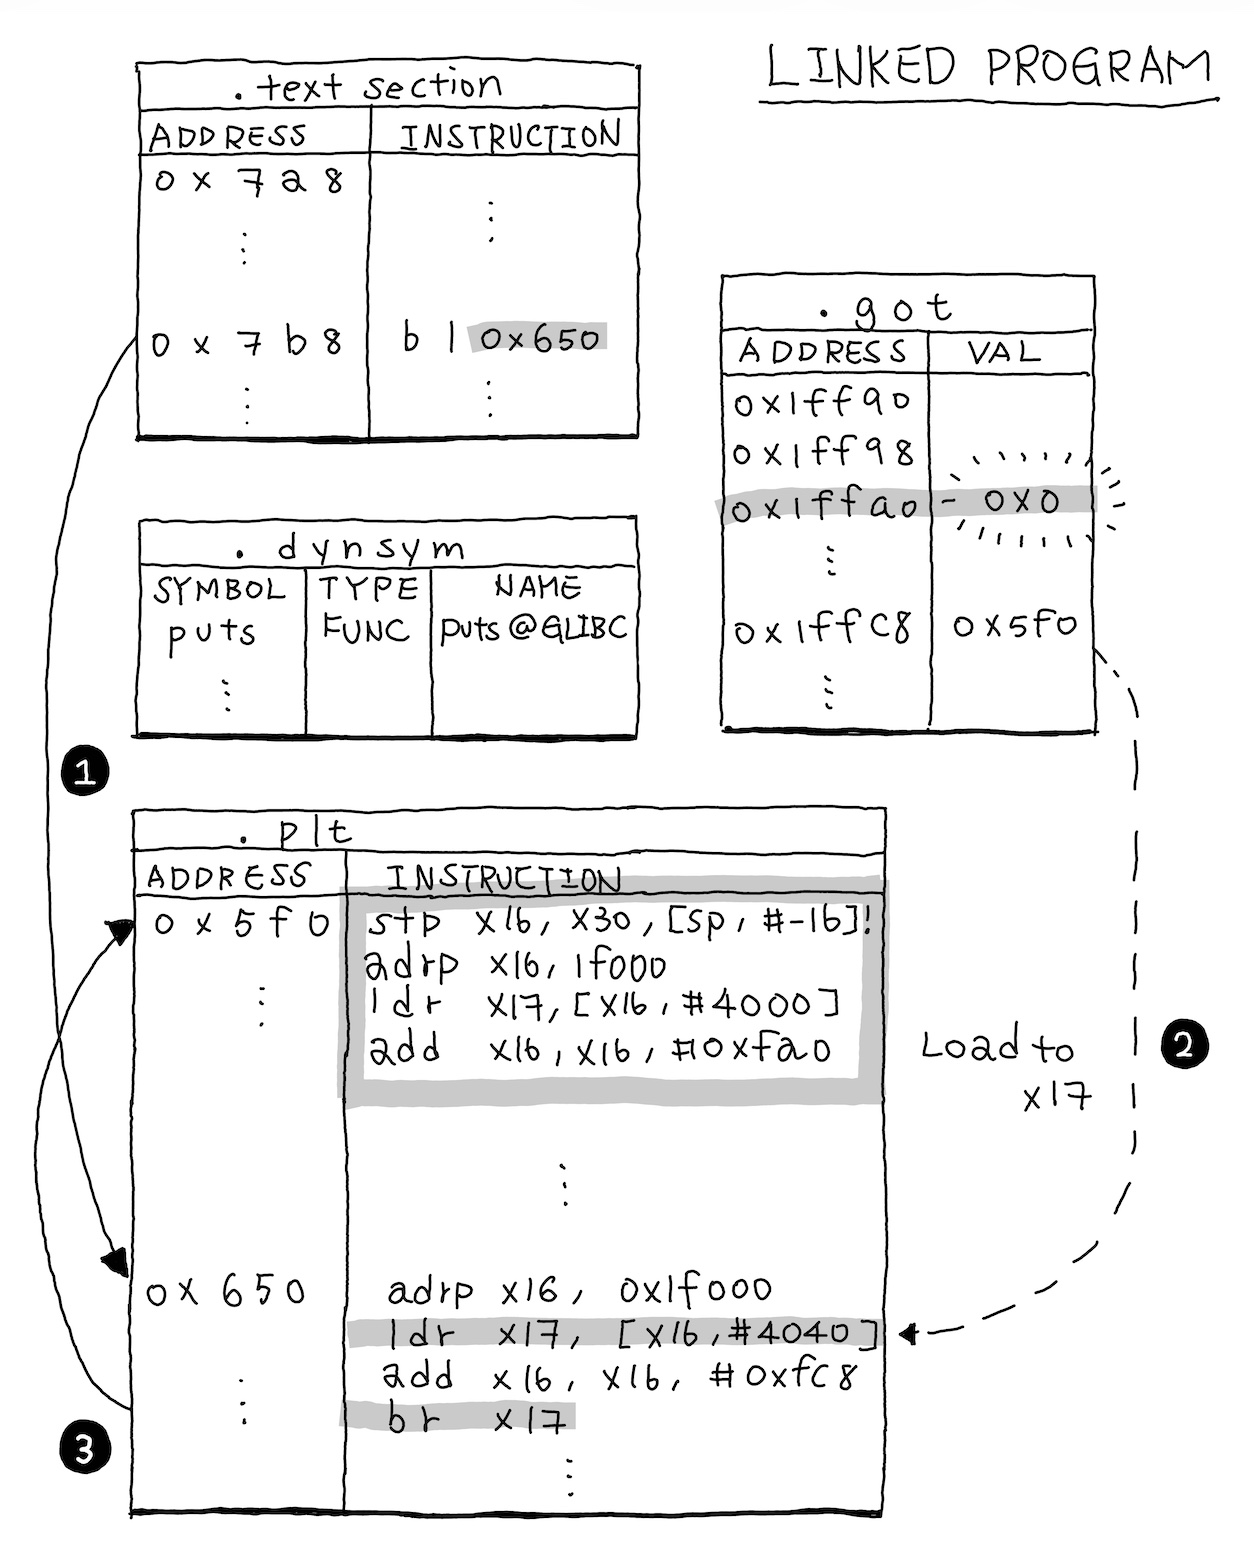 LINKED PROGRAM
.text section
ADDRESS INSTRUCTION
0x7a8
⋮ ⋮
0x7b8 bl 0x650
⋮ ⋮
.got
ADDRESS VAL
0x1ff90
0x1ff98
0x1ffa0 - 0x0
⋮
0x1ffc8 0x5f0
⋮
.dynsym
SYMBOL TYPE NAME
puts FUNC puts@GLIBC
⋮
1
.plt
ADDRESS INSTRUCTION
0x5f0 stp x16, x30, [sp, #-16]!
adrp x16, 1f000
⋮ ldr x17, [x16, #4000]
add x16, x16, #0xfa0
⋮
Load to
x17
2
0x650 adrp x16, 0x1f000
ldr x17, [x16, #4040]
add x16, x16, #0xfc8
⋮ br x17
⋮
3